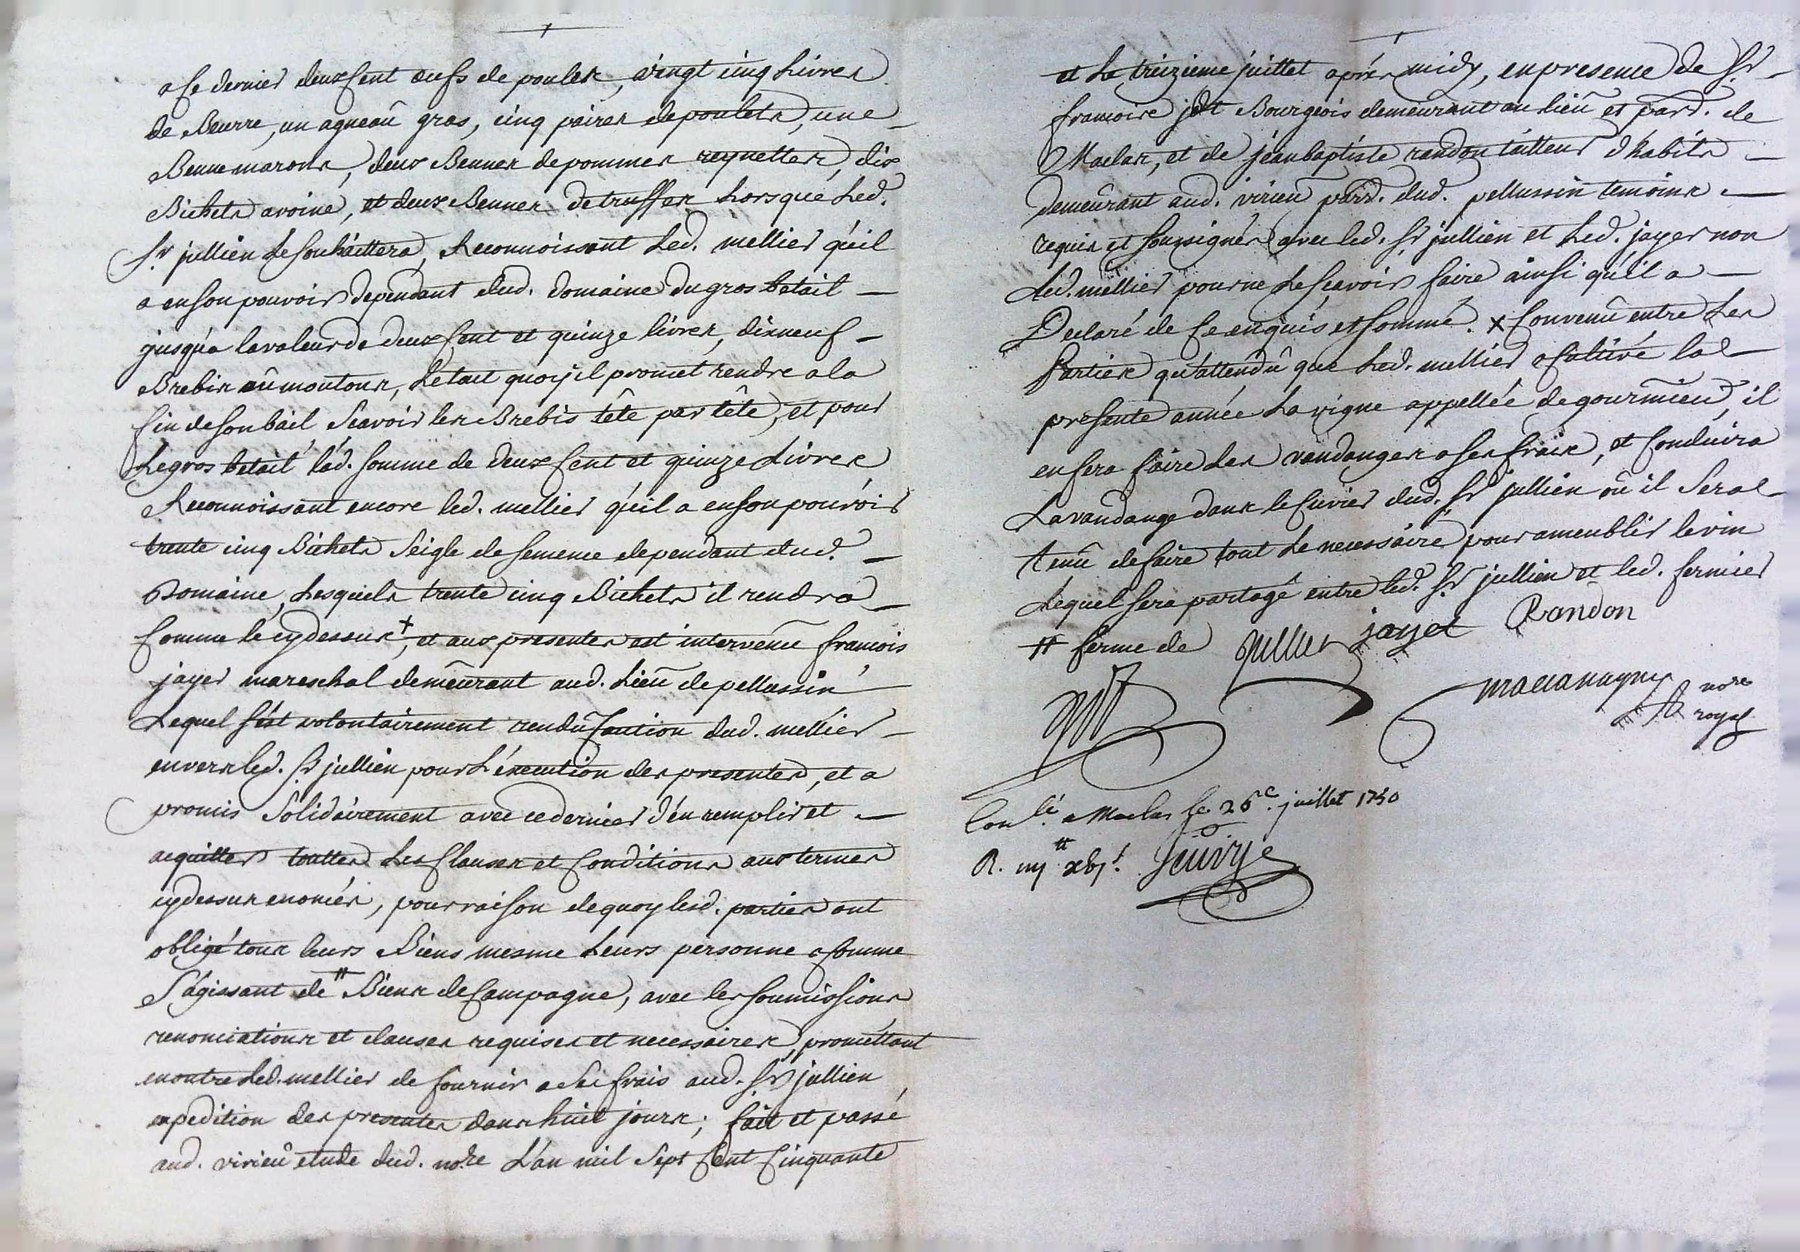 a ce dernier deux cent oeufs de poules, vingt cinq livres
de Beurre, un agneau gras, cinq paires de poulets, une
Benne marons, deux Bennes de pommes reynettes, dix
Bichets avoine, et deux Bennes de truffes Lorsque Led.
Sr. jullien Le Souhaittera, Reconnoissant Led. mellier qu'il
a en son pouvoir dependant dud. domaine du gros betail
jusqu'a la valeur de deux Cent et quinze livres, dixneuf
Brebis ou moutons, de tout quoy il promet rendre a la
fin de son bail Scavoir les Brebis tête par tête, et pour
Le gros betail lad. Somme de deux Cent et quinze Livres
Reconnoissant encore led. mellier qu'il a en son pouvoir
trente cinq Bichets Seigle de Semence dependant dud.
Domaine, Lesquels trente cinq Bichets il rendra
Comme le cydessus +, et aux presentes est intervenu francois
jayer mareschal demeurant aud. Lieu de pellussin
Lequel s'est volontairement rendu Caution dud. mellier
envers led. Sr jullien pour L'execution des presentes, et a
promis Solidairement avec ce dernier d'en remplir et
acquitter touttes Les Clauses et Conditions aux termes
cydessus enoncés, pour raison de quoy lesd. parties ont
obligé tous leurs Biens mesme Leurs personne a Comme
S'agissant de # Biens de Campagne, avec les Soumissions
renonciations et clauses requises et necessaires, promettant
en outre Led. mellier de fournir a Ses frais aud. Sr jullien
expedition des presentes dans huit jours; fait et passé
aud. virieu etude dud. nore L'an mil Sept Cent Cinquante
et Le treizieme juillet après midy, en presence de Sr
francois jdt Bourgeois demeurant au lieu et parr. de
Maclas, et de jean baptiste randon tailleur d'habits
demeurant aud. virieu parr. dud. pellussin temoins
requis et Soussignés avec led. Sr jullien et Led. jayer non
Led. mellier pour ne Le Scavoir faire ainsi qu'il a
Declaré de Ce enquis et Sommé. x Convenu entre Les
Parties qu'attendû que Led. mellier a Cultivé la
presente année La vigne appellée de gourmieu, il
en fera faire Les vandanges a Ses frais, et Conduira
La vandange dans le Cuvier dud. Sr jullien où il Sera
tenu de faire tout Le necessaire pour ameublir le vin
Lequel Sera partagé entre led. Sr jullien et led. fermier
# ferme de jullien jayet Randon
nore
royal
a Maclas le 26e. juillet 1750